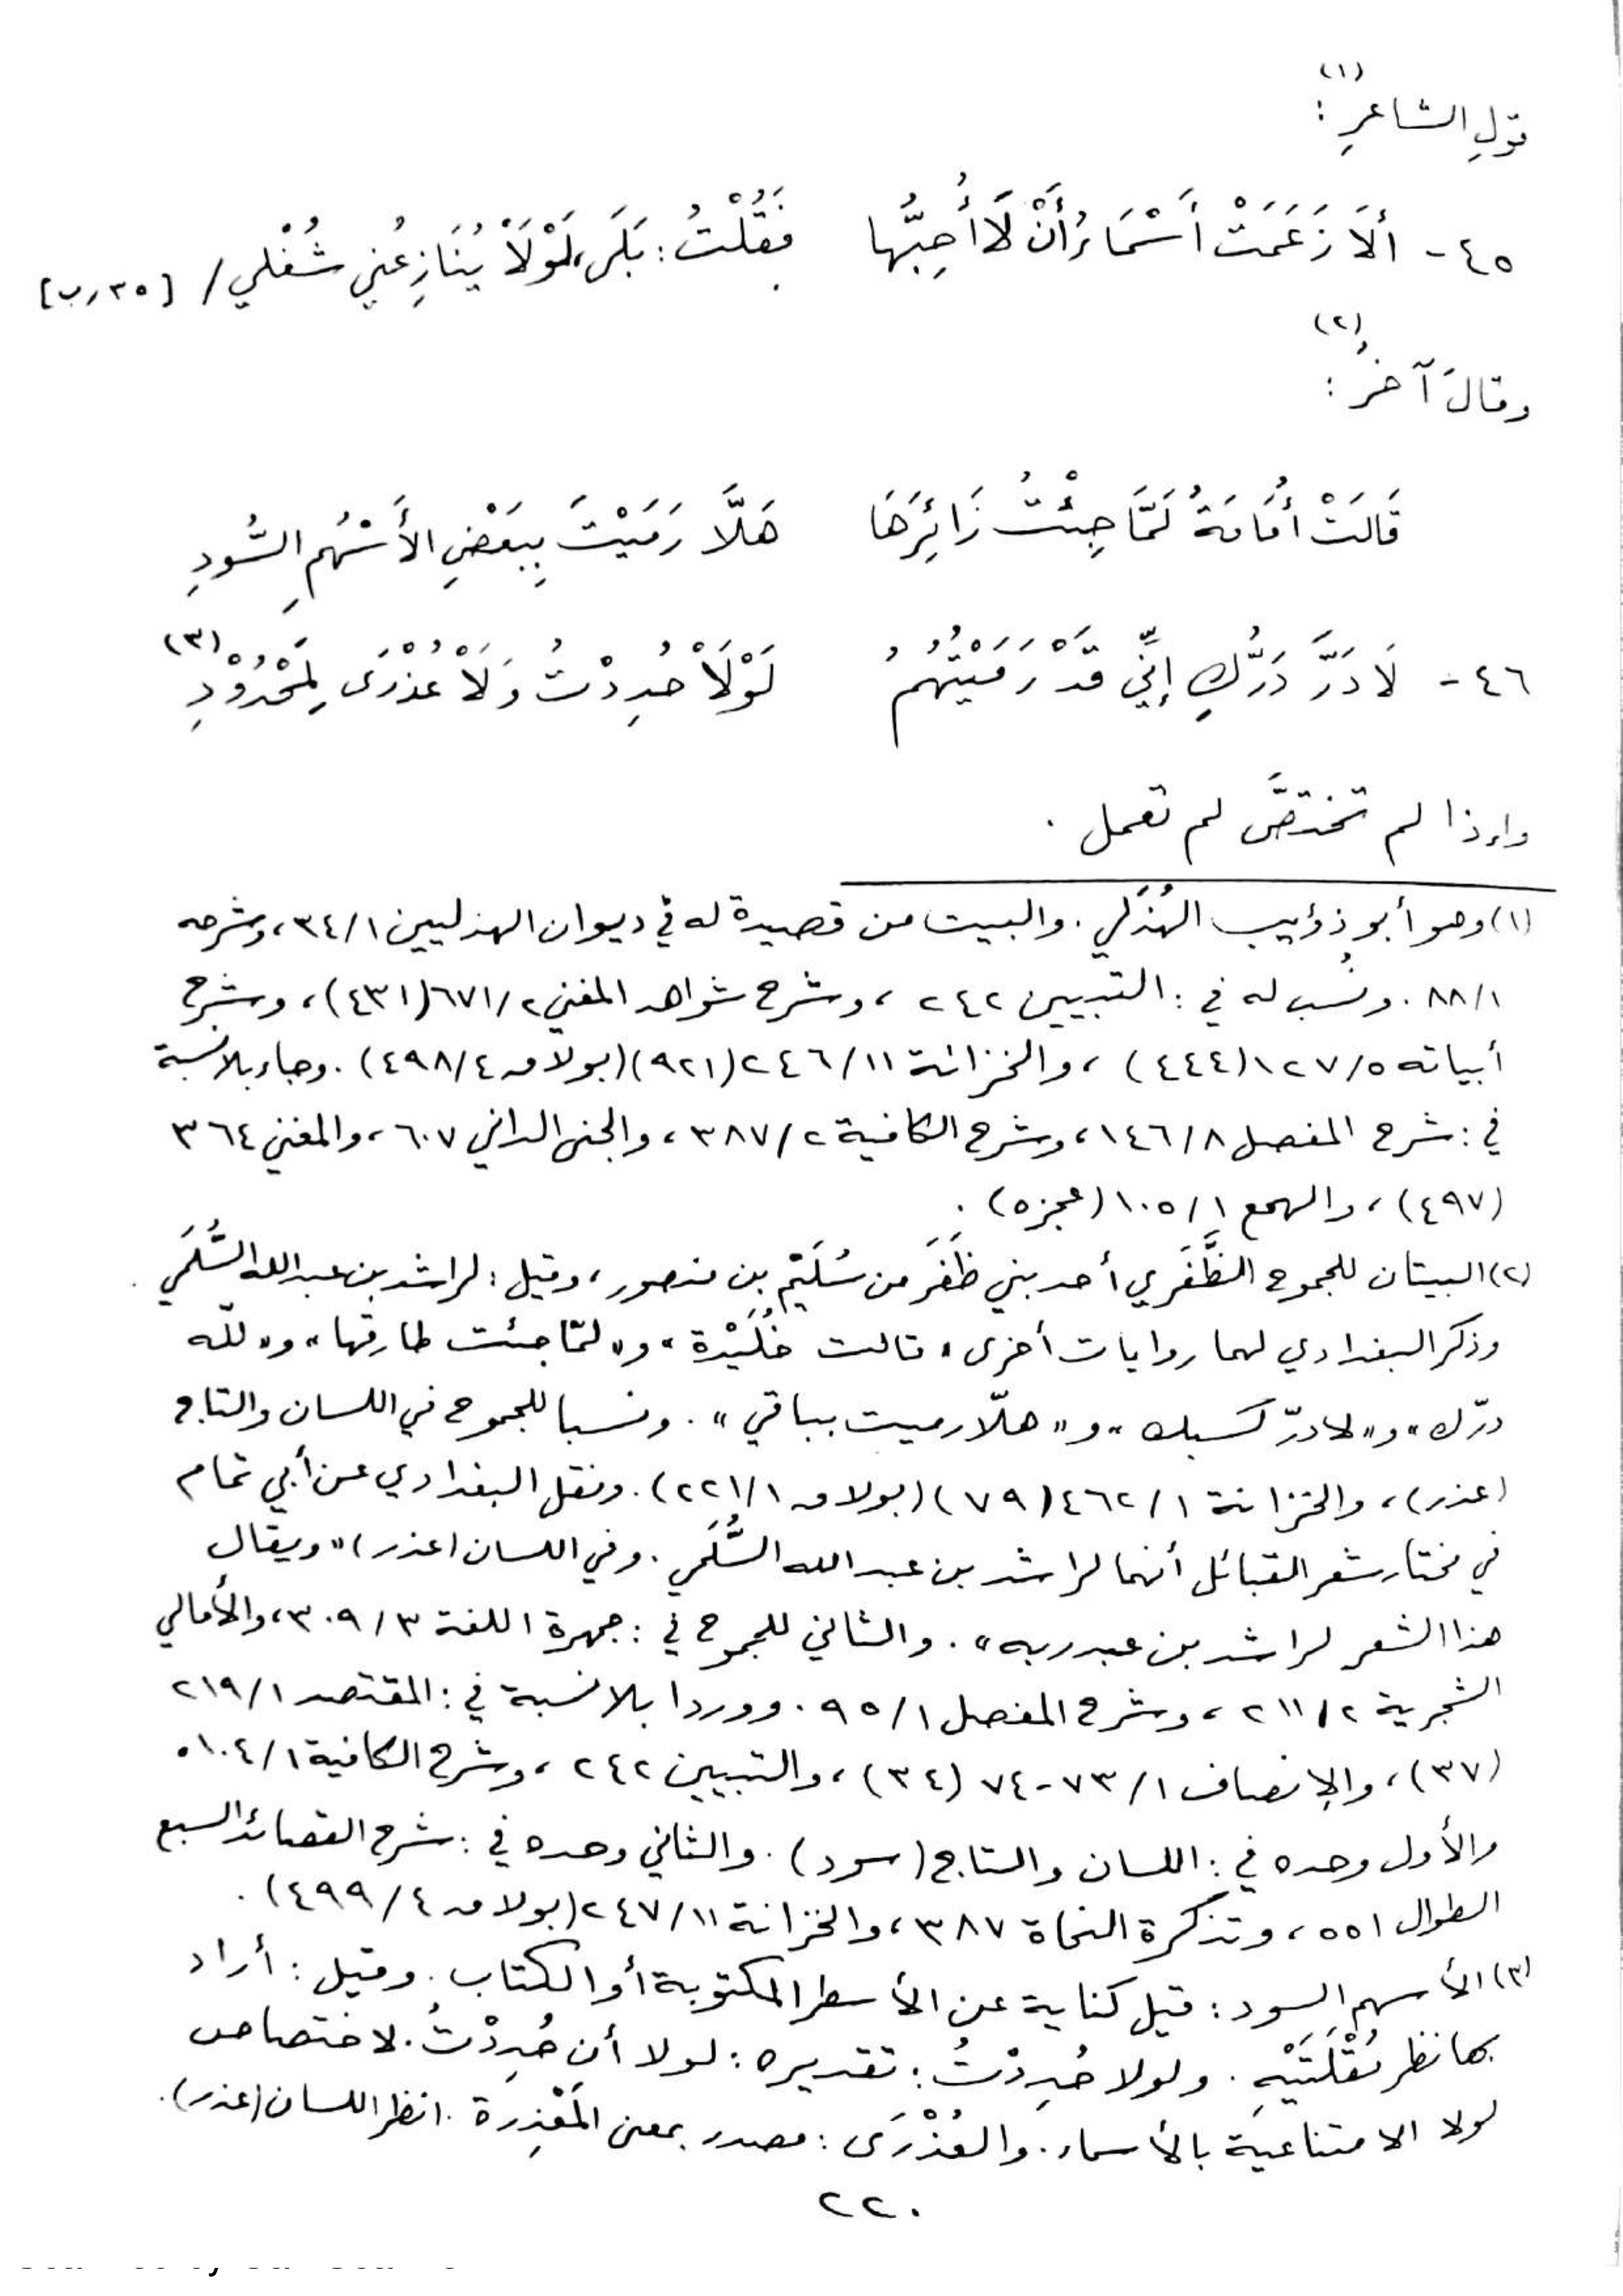 (١)
قولِ الشاعرِ :
٤٥ - أَلاَ زَعَمَتْ أَسْمَاءُ أَنْ لَا أُحِبُّها فَقُلْتُ : بَلَى، لَوْلَاْ يُنَازِعُنِي شُغْلي / [٣٥/ب]
(٢)
وقالَ آخرُ :
قَالَتْ أُمَامَةُ لَمَّا جِئْتُ زَائِرَهَا هَلَّا رَمَيْتَ بِبَعْضِ الأَسْهُمِ السُّودِ
٤٦ - لَا دَرَّ دَرُّكِ إنِّي قَدْ رَمَيْتُهُمُ لَوْلَاْ حُدِدْتُ وَلَاْ عُذْرَى لِمَحْدُوْدِ (٣)
وإذا لم تختصَّ لم تعمل .
(١) وهو أبو ذؤيب الهُذَلي . والبيت من قصيدة له في ديوان الهذليين ٣٤/١، وشرحه
٨٨/١ . ونُسب له في : التبيين ٢٤٢ ، وشرح شواهد المغني ٦٧١/٢ (٤٣١) ، وشرح
أبياته ١٢٧/٥ (٤٤٤) ، والخزانة ٢٤٦/١١ (٩٢١) (بولاق ٤٩٨/٤) . وجاء بلا نسبة
في : شرح المفصل ١٤٦/٨ ، وشرح الكافية ٣٨٧/٢ ، والجنى الداني ٦٠٧ ، والمغني ٣٦٤
(٤٩٧) ، والهمع ١٠٥/١ (عجزه) .
(٢) البيتان للجموح الظَّفَري أحد بني ظَفَر من سُلَيْم بن منصور ، وقيل : لراشد بن عبدالله السُّلَمي .
وذكر البغدادي لهما روايات أخرى « قالت خُلَيْدة » و« لمّا جئت طارقها » و« للّه
درّك » و« لا درّ كسبك » و« هلّا رميت بباقي » . ونسبا للجموح في اللسان والتاج
(عذر) ، والخزانة ٤٦٢/١ (٧٩) (بولاق ٢٢١/١) . ونقل البغدادي عن أبي تمام
في مختار شعر القبائل أنهما لراشد بن عبد الله السُّلَمي . وفي اللسان (عذر) « ويقال
هذا الشعر لراشد بن عبد ربه » . والثاني للجموح في : جمهرة اللغة ٣٠٩/٣ ، والأمالي
الشجرية ٢١١/٢ ، وشرح المفصل ٩٥/١ . ووردا بلا نسبة في : المقتصد ٢١٩/١
(٣٧) ، والإنصاف ٧٣/١-٧٤ (٣٤) ، والتبيين ٢٤٢ ، وشرح الكافية ١٠٤/١ .
والأول وحده في : اللسان والتاج (سود) . والثاني وحده في : شرح القصائد السبع
الطوال ٥٥١ ، وتذكرة النحاة ٣٨٧ ، والخزانة ٢٤٧/١١ (بولاق ٤٩٩/٤) .
(٣) الأسهم السود : قيل كناية عن الأسطر المكتوبة أو الكتاب . وقيل : أراد
بها نظر مُقْلَتَيْهِ . ولولا حُدِدْتُ : تقديره : لولا أن حُدِدْتُ . لاختصاص
لولا الامتناعية بالأسماء . والعُذْرَى : مصدر بمعنى المَعْذِرة . انظر اللسان (عذر) .
٢٢٠